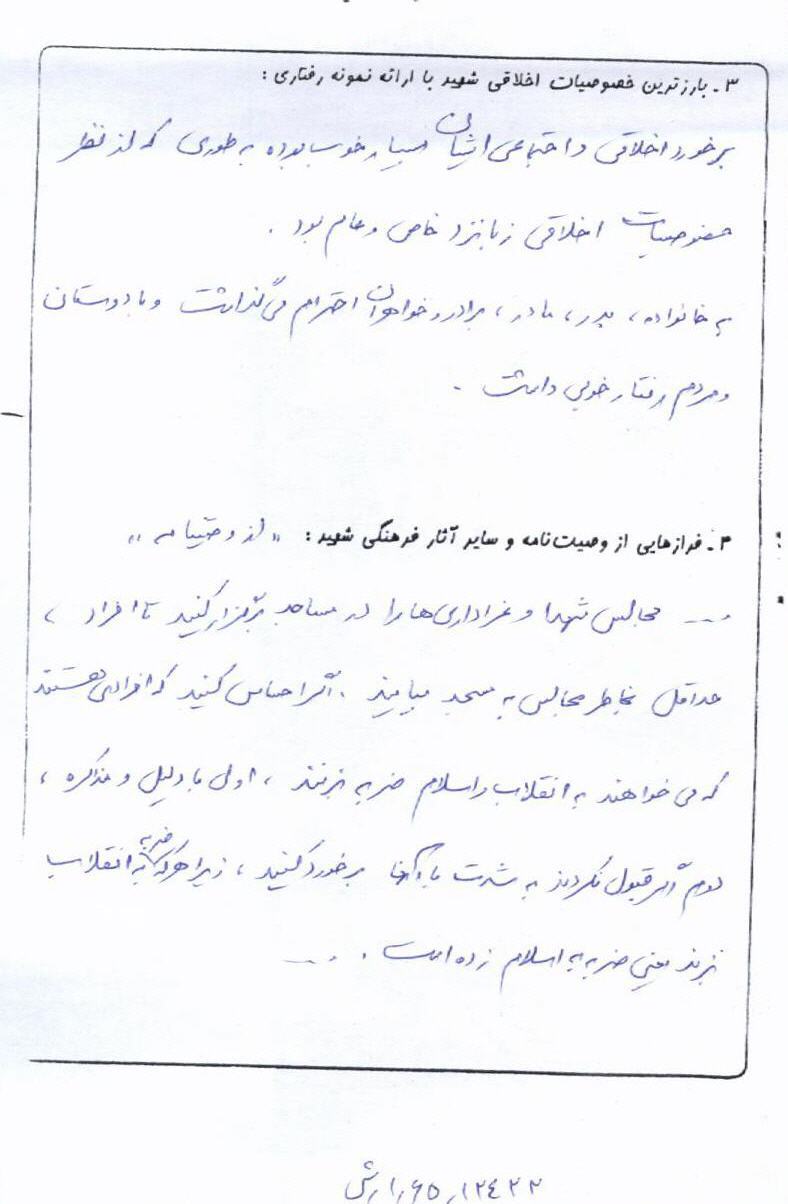 ۳ـ بارزترین خصوصیات اخلاقی شهید با ارائه نمونه رفتاری :
برخورد اخلاقی و اجتماعی ایشان بسیار خوب بوده به طوری که از نظر
خصوصیات اخلاقی زبانزد خاص و عام بود .
به خانواده ، پدر ، مادر ، برادر و خواهران احترام می‌گذاشت و با دوستان
و مردم رفتار خوبی داشت .
۴ـ فرازهایی از وصیت‌نامه و سایر آثار فرهنگی شهید : «از وصیتنامه»
... مجالس شهدا و عزاداری‌ها را در مساجد برگزار کنید تا افراد ،
حداقل بخاطر مجالس به مسجد بیایند . اگر احساس کنید که افرادی هستند
که می خواهند به انقلاب و اسلام ضربه بزنند ، اول با دلیل و مذاکره ،
دوم اگر قبول نکردند به شدت با آنها برخورد کنید ، زیرا هر که ضربه به انقلاب
بزند یعنی ضربه به اسلام زده است . ...